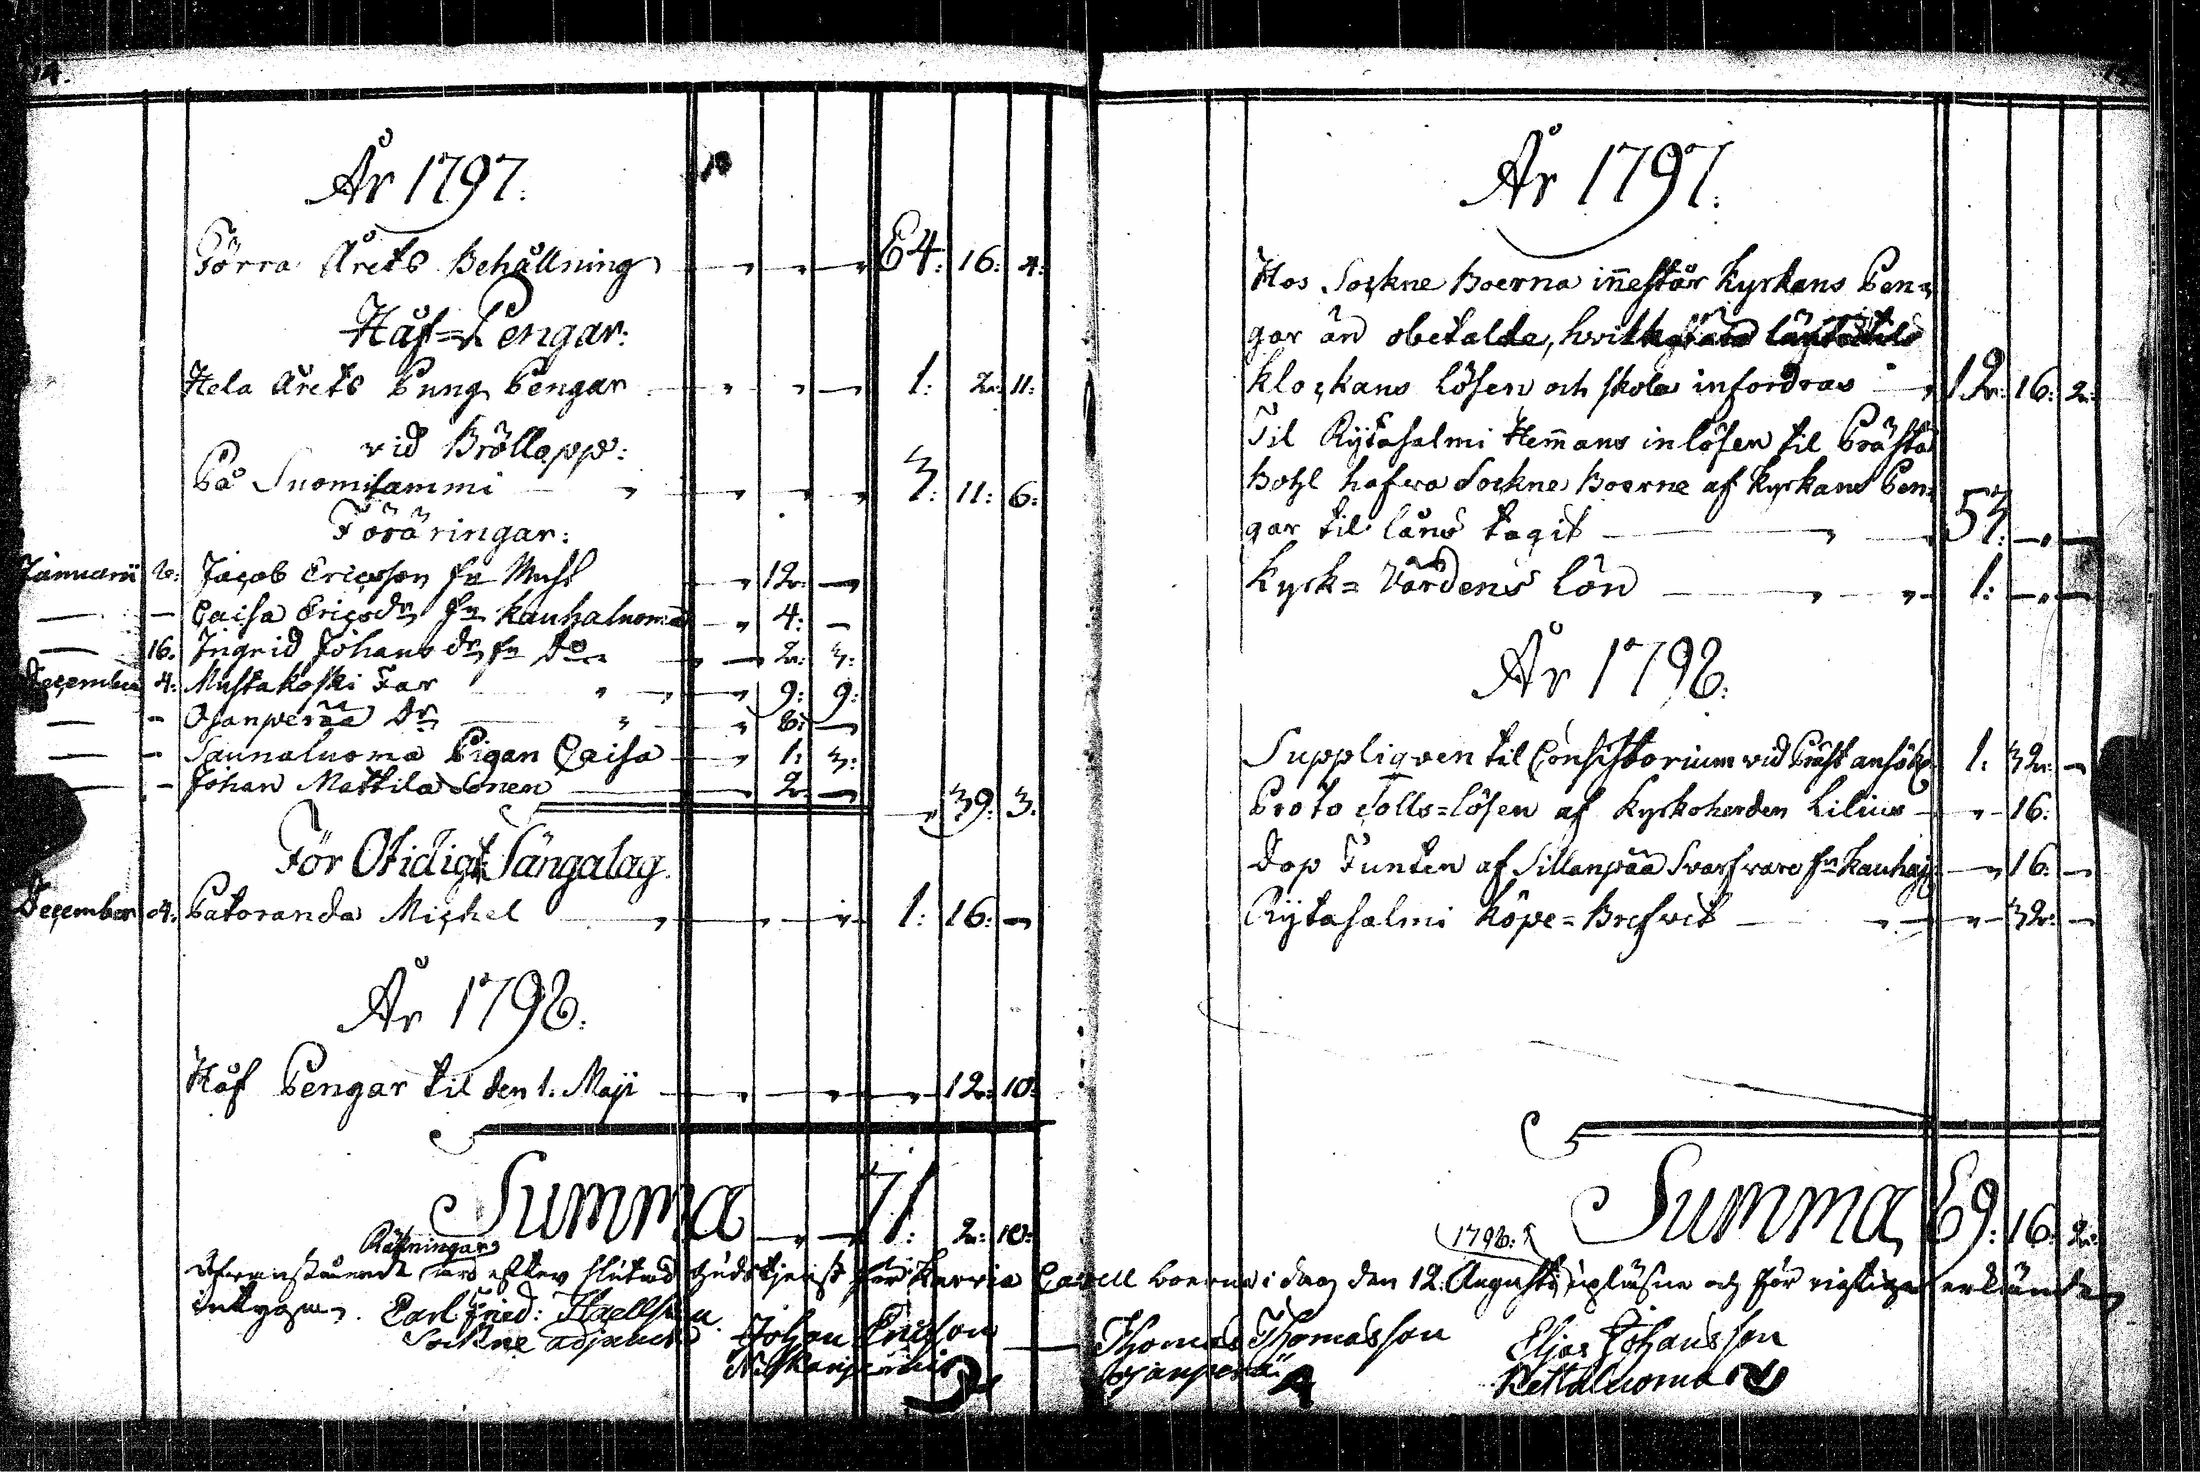 År 1797.
Förra Årets Behållning 64: 16: 4:
Håf=Pengar:
Hela Årets Pung Pengar 1: 2: 11:
vid Bröllopp:
På Suomilammi 3: 11: 6:
Föräringar:
Januarii 6: Jacob Ericsson fr Must 12: —
— — Caisa Ericsdr fr Kauhaluoma 4: —
— 16. Ingrid Johans dr fr Do 2: 3:
December 4: Mustakoski Far 9: 9:
— - Ojanperää Dr 8: —
— - Saunaluoma Pigan Caisa 1: 3:
— - Johan Mattila Sonen 2: —
39: 3.
För Otidigt Sängalag.
December 4: Patoranda Michel 1: 16: —
År 1798.
Håf Pengar til den 1. Maji 12: 10:
Summa 71: 2: 10:
År 1797.
Hos Sockne Boerna innestår Kyrkans Pen=
gar än obetalde,
Klockans lösen och skola infordras 12: 16: 2:
Til Rytasalmi Hemmans inlösen til Prästa
Bohl hafwa Sockne Boerne af Kyrkans Pen=
gar til låns tagit 53: — —
Kyrk=Värdens Lön 1: — —
År 1798.
Suppliquen til Consistorium vid Präst ansökn 1: 32: —
Protocolls=lösen af Kyrkoherden Lilius 16:
Dop Funten af Sillanpää Svarfvare fr Kauhaj: 16: —
Rytasalmi Köpe=Brefvet 32: —
Summa 69: 16: 2:
Räkningar 1798:
Ofvanstående efter slutad Gudstjenst för Karvia Capell Boerna i dag den 12. Augusti upläsne och för rigtige erkände
intygom. Carl Fried:
Sockne Adjunct Johan Ericson — Thomas Thomasson Eljas Johansson
Ojanperä Kettaluoma